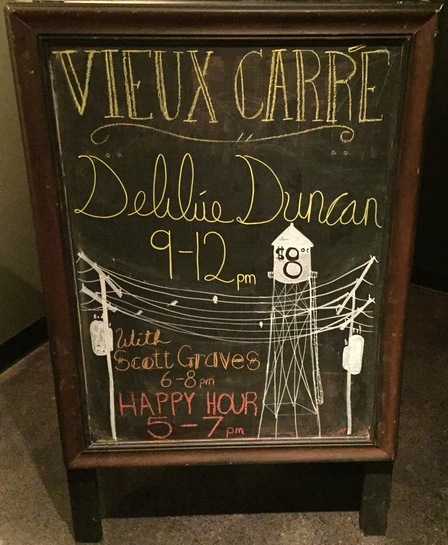 VIEUX CARRÉ
Debbie Duncan
9-12 pm
$8
With
Scott Graves
6-8 pm
HAPPY HOUR
5-7 pm